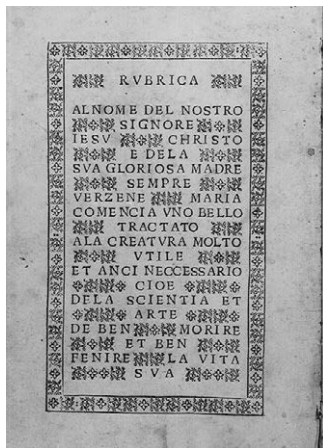 RVBRICA
AL NOME DEL NOSTRO
SIGNORE
IESV CHRISTO
E DELA
SVA GLORIOSA MADRE
SEMPRE
VERZENE MARIA
COMENCIA VNO BELLO
TRACTATO
ALA CREATVRA MOLTO
VTILE
ET ANCI NECCESSARIO
CIOE
DELA SCIENTIA ET
ARTE
DE BEN MORIRE
ET BEN
FENIRE LA VITA
SVA